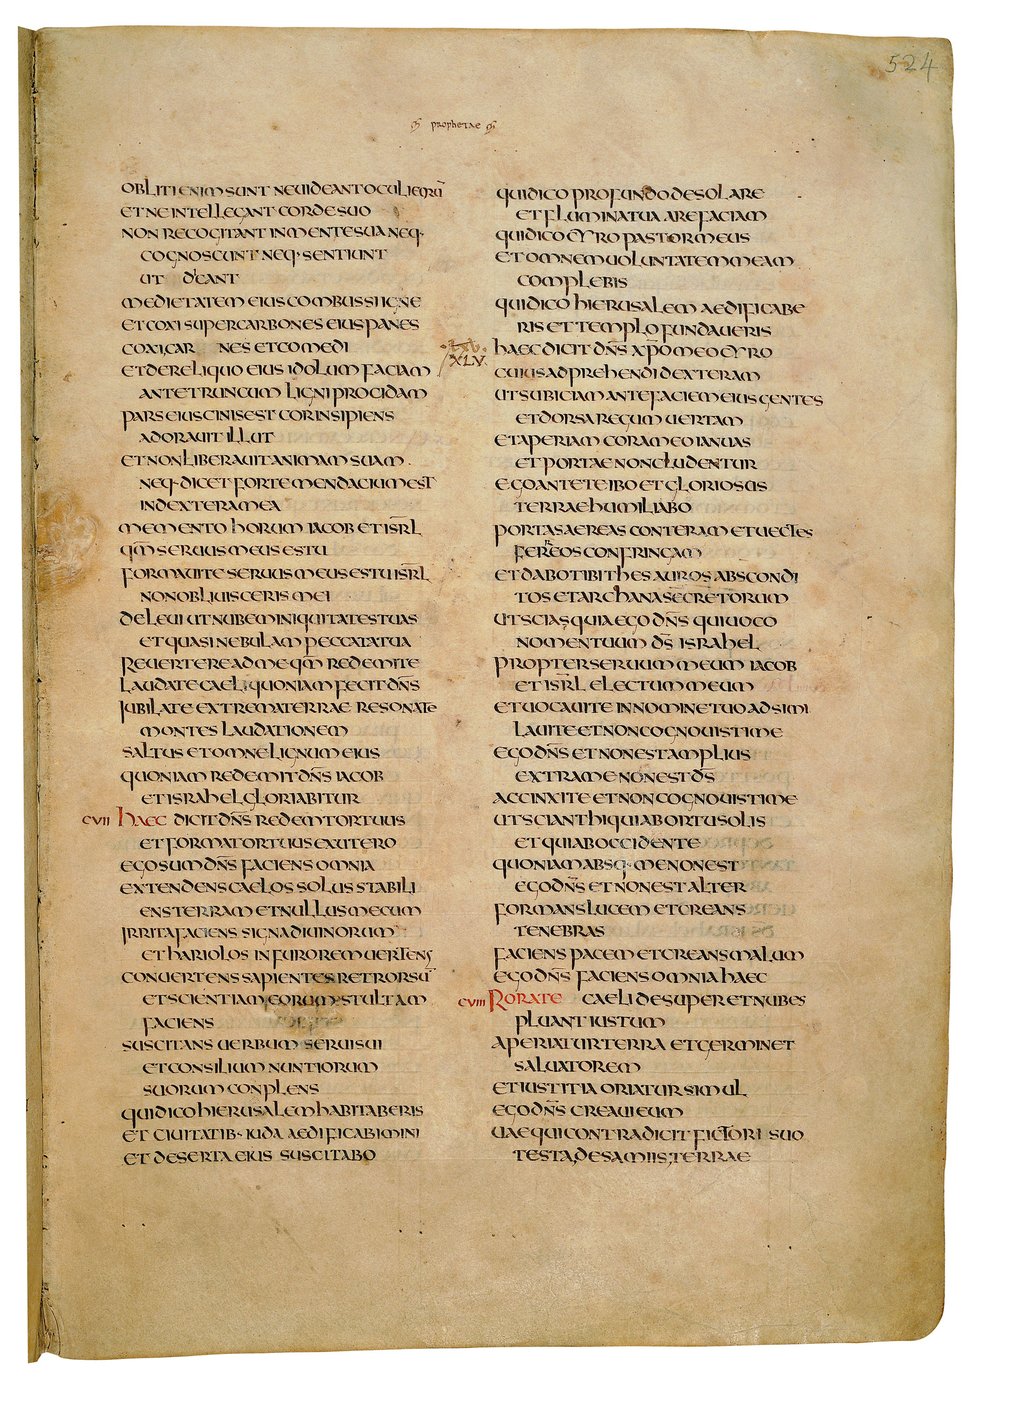 524
prophetae
OBLITI ENIM SUNT NE UIDEANT OCULI EORŪ
ET NE INTELLEGANT CORDE SUO
NON RECOGITANT IN MENTE SUA NEQ·
COGNOSCUNT NEQ· SENTIUNT
UT DICANT
MEDIETATEM EIUS COMBUSSI IGNE
ET COXI SUPER CARBONES EIUS PANES
COXI CARNES ET COMEDI
ET DE RELIQUO EIUS IDOLUM FACIAM
ANTE TRUNCUM LIGNI PROCIDAM
PARS EIUS CINIS EST COR INSIPIENS
ADORAUIT ILLUT
ET NON LIBERAUIT ANIMAM SUAM
NEQ· DICET FORTE MENDACIUM EST
IN DEXTERA MEA
MEMENTO HORUM IACOB ET ISRL̄
QM̄ SERUUS MEUS ES TU
FORMAUI TE SERUUS MEUS ES TU ISRL̄
NON OBLIUISCERIS MEI
DELEUI UT NUBEM INIQUITATES TUAS
ET QUASI NEBULAM PECCATA TUA
REUERTERE AD ME QM̄ REDEMI TE
LAUDATE CAELI QUONIAM FECIT DN̄S
IUBILATE EXTREMA TERRAE RESONATE
MONTES LAUDATIONEM
SALTUS ET OMNE LIGNUM EIUS
QUONIAM REDEMIT DN̄S IACOB
ET ISRAHEL GLORIABITUR
CVII HAEC DICIT DN̄S REDEMTOR TUUS
ET FORMATOR TUUS EX UTERO
EGO SUM DN̄S FACIENS OMNIA
EXTENDENS CAELOS SOLUS STABILI
ENS TERRAM ET NULLUS MECUM
IRRITA FACIENS SIGNA DIUINORUM
ET HARIOLOS IN FUROREM UERTENS
CONUERTENS SAPIENTES RETRORSŪ
ET SCIENTIAM EORUM STULTAM
FACIENS
SUSCITANS UERBUM SERUI SUI
ET CONSILIUM NUNTIORUM
SUORUM CONPLENS
QUI DICO HIERUSALEM HABITABERIS
ET CIUITATIB· IUDA AEDIFICABIMINI
ET DESERTA EIUS SUSCITABO
QUI DICO PROFUNDO DESOLARE
ET FLUMINA TUA AREFACIAM
QUI DICO CYRO PASTOR MEUS
ET OMNEM UOLUNTATEM MEAM
COMPLEBIS
QUI DICO HIERUSALEM AEDIFICABE
RIS ET TEMPLO FUNDAUERIS
XLV. HAEC DICIT DN̄S XP̄O MEO CYRO
CUIUS ADPREHENDI DEXTERAM
UT SUBICIAM ANTE FACIEM EIUS GENTES
ET DORSA REGUM UERTAM
ET APERIAM CORAM EO IANUAS
ET PORTAE NON CLUDENTUR
EGO ANTE TE IBO ET GLORIOSOS
TERRAE HUMILIABO
PORTAS AEREAS CONTERAM ET UECTES
FERREOS CONFRINGAM
ET DABO TIBI THESAUROS ABSCONDI
TOS ET ARCHANA SECRETORUM
UT SCIAS QUIA EGO DN̄S QUI UOCO
NOMEN TUUM DS̄ ISRAHEL
PROPTER SERUUM MEUM IACOB
ET ISRL̄ ELECTUM MEUM
ET UOCAUI TE IN NOMINE TUO ADSIMI
LAUI TE ET NON COGNOUISTI ME
EGO DN̄S ET NON EST AMPLIUS
EXTRA ME NON EST DS̄
ACCINXI TE ET NON COGNOUISTI ME
UT SCIANT HI QUI AB ORTU SOLIS
ET QUI AB OCCIDENTE
QUONIAM ABSQ· ME NON EST
EGO DN̄S ET NON EST ALTER
FORMANS LUCEM ET CREANS
TENEBRAS
FACIENS PACEM ET CREANS MALUM
EGO DN̄S FACIENS OMNIA HAEC
CVIII RORATE CAELI DESUPER ET NUBES
PLUANT IUSTUM
APERIATUR TERRA ET GERMINET
SALUATOREM
ET IUSTITIA ORIATUR SIMUL
EGO DN̄S CREAUI EUM
UAE QUI CONTRADICIT FICTORI SUO
TESTA DE SAMIIS TERRAE